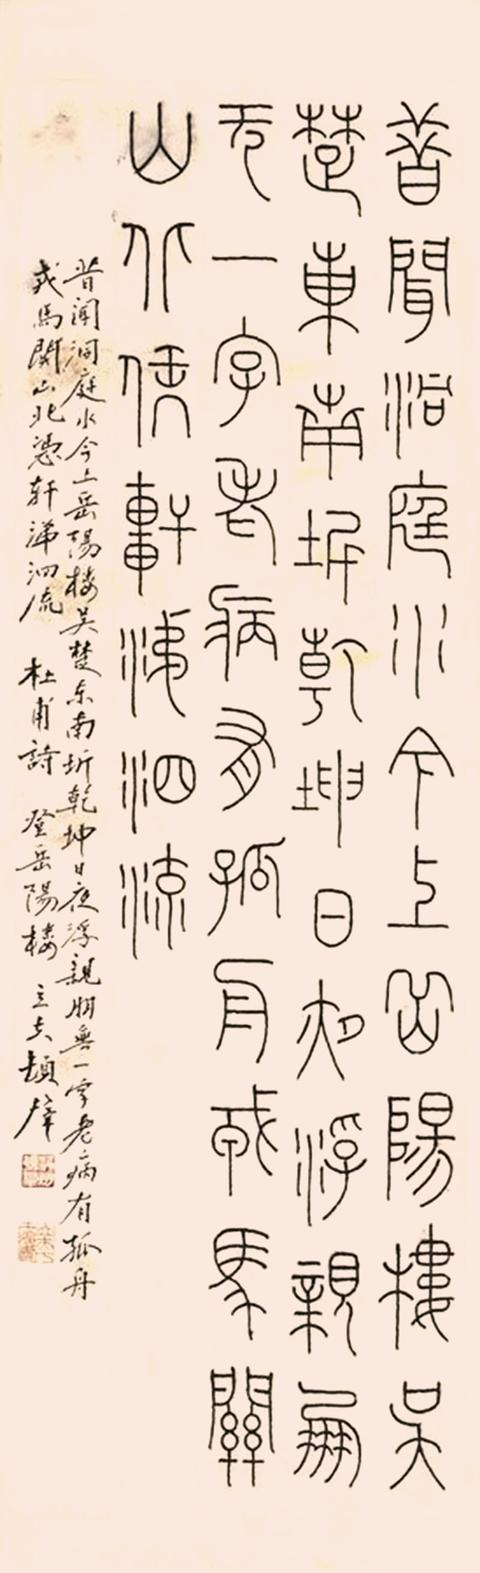 昔聞洞庭水今上岳陽樓吳
楚東南坼乾坤日夜浮親朋
无一字老病有孤舟戎馬關
山北凭軒涕泗流
昔闻洞庭水今上岳陽楼吴楚东南坼乾坤日夜浮親朋無一字老病有孤舟
戎馬関山北憑轩涕泗流 杜甫詩 登岳陽楼